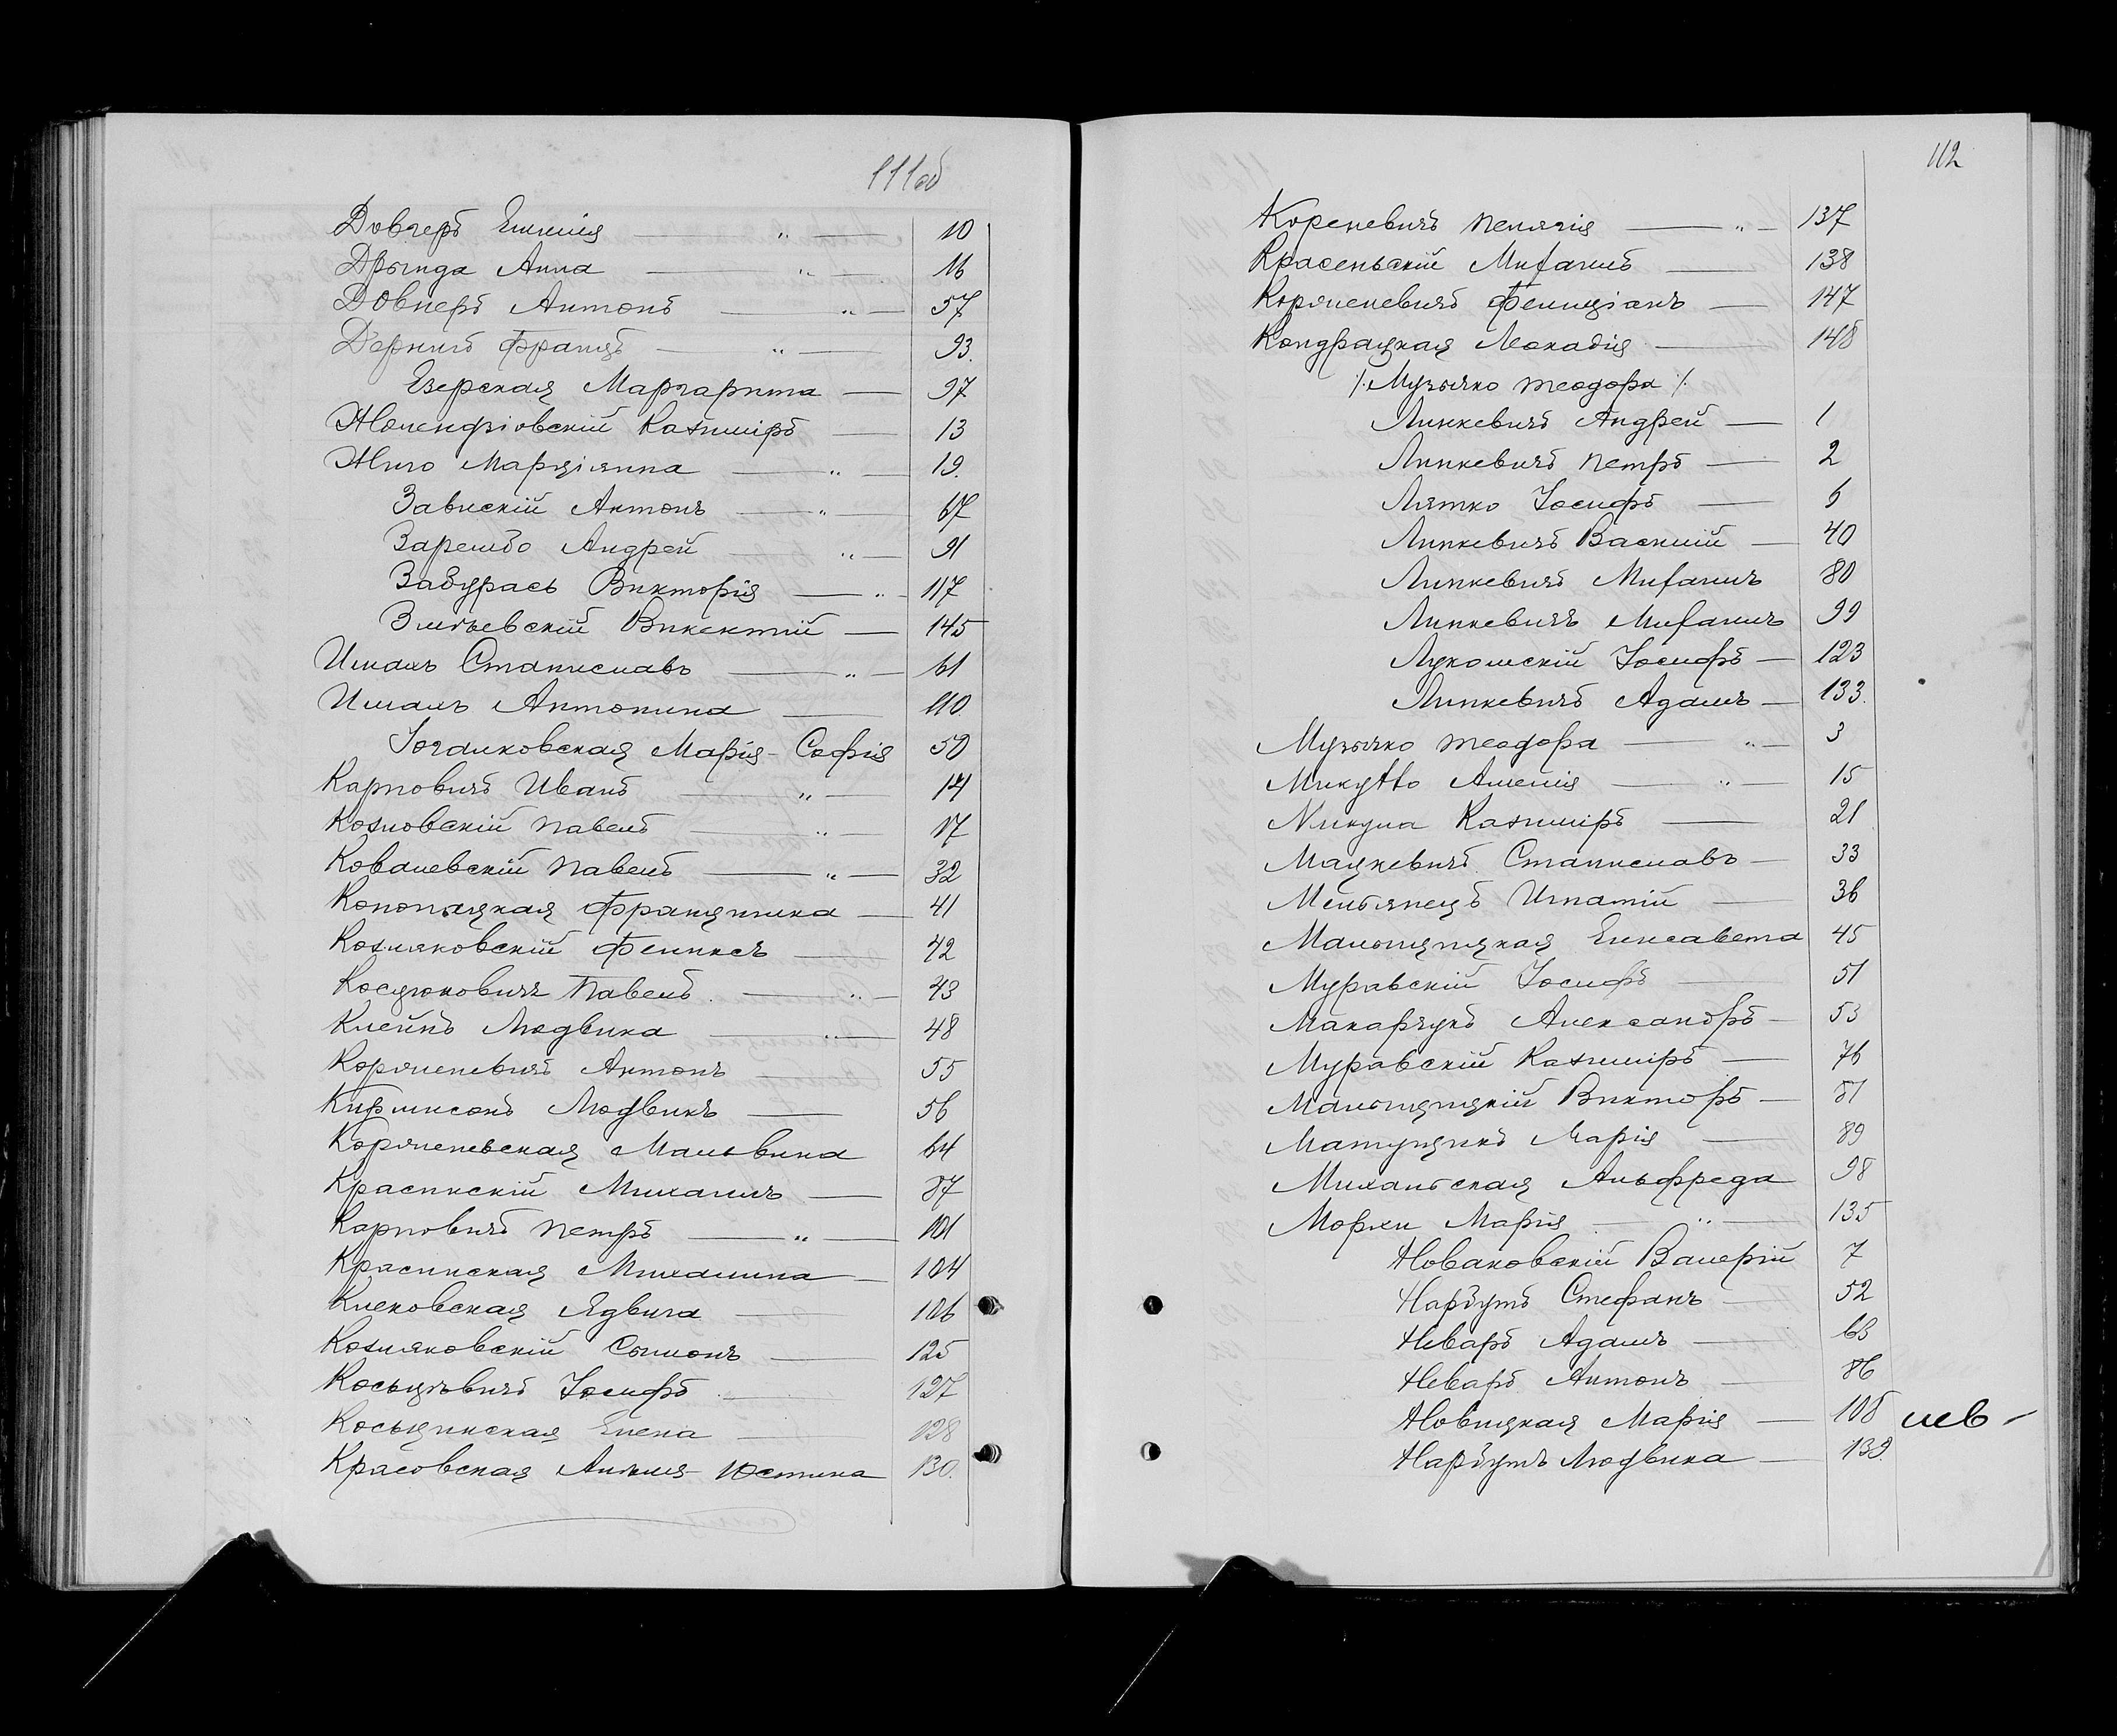 111об
Довгертъ Емилія — " — 10
Дрында Анна — " — 16
Довнеръ Антонъ — " — 57
Дерингъ Францъ — " — 93.
Езерская Маргарита — 97
Жолендзіовскій Казиміръ — 13
Жиго Марціянна — " — 19.
Завискій Антонъ — " — 67
Зарембо Андрей — " — 91
Забурась Викторія — " — 117
Змѣевскій Викентій — 145
Иманъ Станиславъ — " — 61
Иманъ Антонина — 110.
Іогалковская Марія-Софія 50
Карповичъ Иванъ — " — 14
Козловскій Павелъ — " — 17
Ковалевскій Павелъ — " — 32
Конопацкая Францишка — 41
Козляковскій Феликсъ — 42
Косцюковичъ Павелъ. — " — 43
Клейнъ Людвика — " — 48
Корженевичъ Антонъ — 55
Кирлисонъ Людвикъ — 56
Корженевская Мальвина 64
Красинскій Михаилъ — 87
Карповичъ Петръ — " — 101
Красинская Михалина — 104
Клековская Ядвига — 106
Козляковскій Сымонъ — 125
Косьцѣвичъ Іосифъ — 127
Косьцинская Елена — 128
Красовская Анелія-Юстина 130.
112
Кореневичъ Пелагія — " — 137
Красеньскій Михаилъ — 138
Корженевичъ Фелиціанъ — 147
Кондрацкая Леокадія — 148
/. Музычко Теодора /.
Линкевичъ Андрей — 1
Линкевичъ Петръ — 2
Лятко Іосифъ — 6
Линкевичъ Василій — 40
Линкевичъ Михаилъ 80
Линкевичъ Михаилъ 99
Лукомскій Іосифъ — 123
Линкевичъ Адамъ — 133.
Музычко Теодора — " — 3
Микутто Амелія — " — 15
Микула Казиміръ — 21
Мацкевичъ Станиславъ — 33
Мельянецъ Игнатій — 36
Малышицкая Елисавета 45
Муравскій Іосифъ — 51
Макарчукъ Александръ — 53
Муравскій Казиміръ — 76
Малышицкій Викторъ — 81
Матуцикъ Марія — 89
Михальская Альфреда 98
Моржи Марія — " — 135
Новаковскій Валерій 7
Нарбутъ Стефанъ — 52
Неваръ Адамъ — 63
Неваръ Антонъ — 86
Новицкая Марія — 108 лев -
Нарбутъ Людвика — 139.